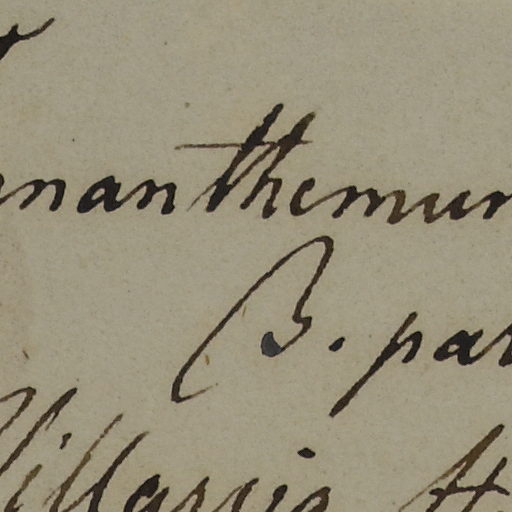 nanthemum
β. par
Villarsia